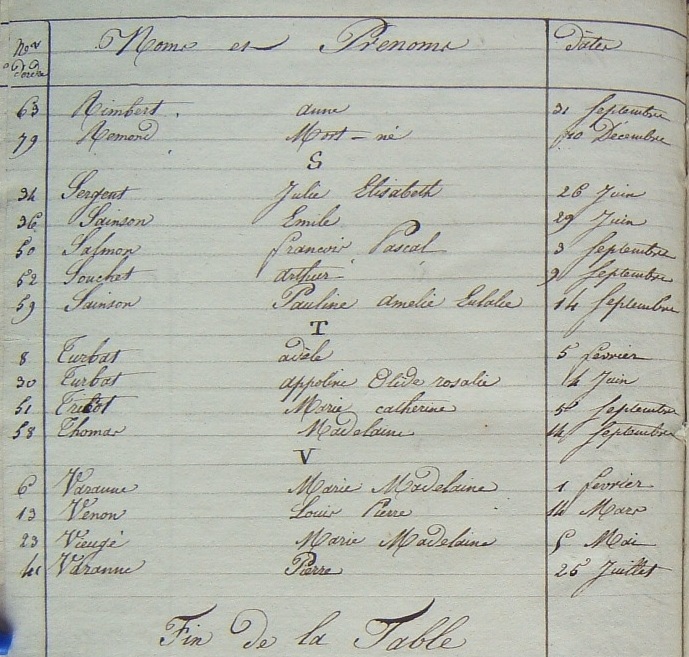 Nos d'ordre Noms et Prenoms Dates
63 Rimbert. anne 31 Septembre
79 Remond Mort-né 10 Décembre
S
34 Sergent Julie Elisabeth 26 Juin
36 Sainson Emile 29 Juin
50 Salmon francois Pascal 3 Septembre
52 Souchet arthur 9 Septembre
59 Sainson Pauline amelie Eulalie 14 Septembre
T
8 Turbat adèle 5 fevrier
30 Turbat appoline Elide rosalie 14 Juin
51 Tricot Marie catherine 5 Septembre
58 Thomas Madelaine 14 Septembre
V
6 Varanne Marie Madelaine 1 fevrier
13 Venon Louis Pierre 14 Mars
23 Vieugé Marie Madelaine 5 Mai
41 Varanne Pierre 25 Juillet
Fin De la Table